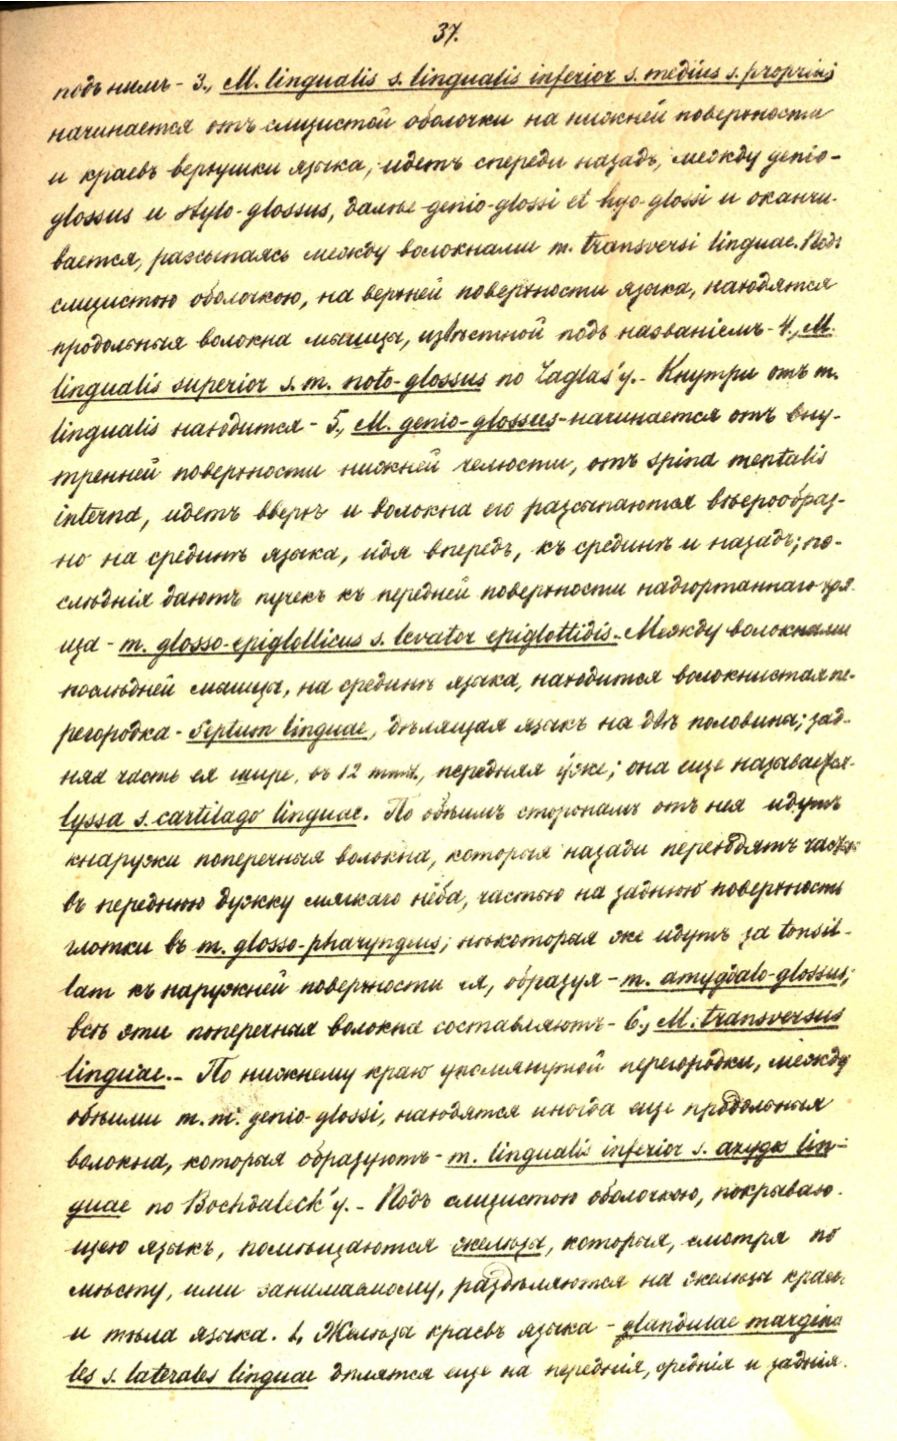 37.
подъ нимъ - 3., M. lingualis s. lingualis inferior s. medius s. proprius
начинается отъ слизистой оболочки на нижней поверхности
и краевъ верхушки языка, идетъ спереди назадъ, между genio-
glossus и stylo-glossus, далѣе genio-glossi et hyo-glossi и оканчи-
вается, разсыпаясь между волокнами m. transversi linguae. Подъ
слизистою оболочкою, на верхней поверхности языка, находятся
продольныя волокна мышцы, извѣстной подъ названіемъ - 4., M.
lingualis superior s. m. noto-glossus по Zaglas'у. - Кнутри отъ m.
lingualis находится - 5., M. genio-glossus - начинается отъ вну-
тренней поверхности нижней челюсти, отъ spina mentalis
interna, идетъ вверхъ и волокна его разсыпаются вѣерообраз-
но на срединѣ языка, идя впередъ, къ срединѣ и назадъ; по-
слѣднія даютъ пучекъ къ передней поверхности надгортаннаго хря-
ща - m. glosso-epiglotticus s. levator epiglottidis. - Между волокнами
послѣдней мышцы, на срединѣ языка, находится волокнистая пе-
регородка - Septum linguae, дѣлящая языкъ на двѣ половины; зад-
няя часть ея шире, въ 12 mmt., передняя уже; она еще называется -
lyssa s. cartilago linguae. По обѣимъ сторонамъ отъ нея идутъ
кнаружи поперечныя волокна, которыя назади переходятъ частью
въ переднюю дужку мягкаго нёба, частью на заднюю поверхность
глотки въ m. glosso-pharyngeus; нѣкоторыя же идутъ за tonsil-
lam къ наружней поверхности ея, образуя - m. amygdalo-glossus;
всѣ эти поперечныя волокна составляютъ - 6., M. transversus
linguae. - По нижнему краю упомянутой перегородки, между
обѣими m. m. genio-glossi, находятся иногда еще продольныя
волокна, которыя образуютъ - m. lingualis inferior s. azygos lin-
guae по Bochdaleck'у. - Подъ слизистою оболочкою, покрываю-
щею языкъ, помѣщаются железы, которыя, смотря по
мѣсту, ими занимаемому, раздѣляются на железы краевъ
и тѣла языка. 1, Железы краевъ языка - glandulae margina
les s. laterales linguae дѣлятся еще на переднія, среднія и заднія.